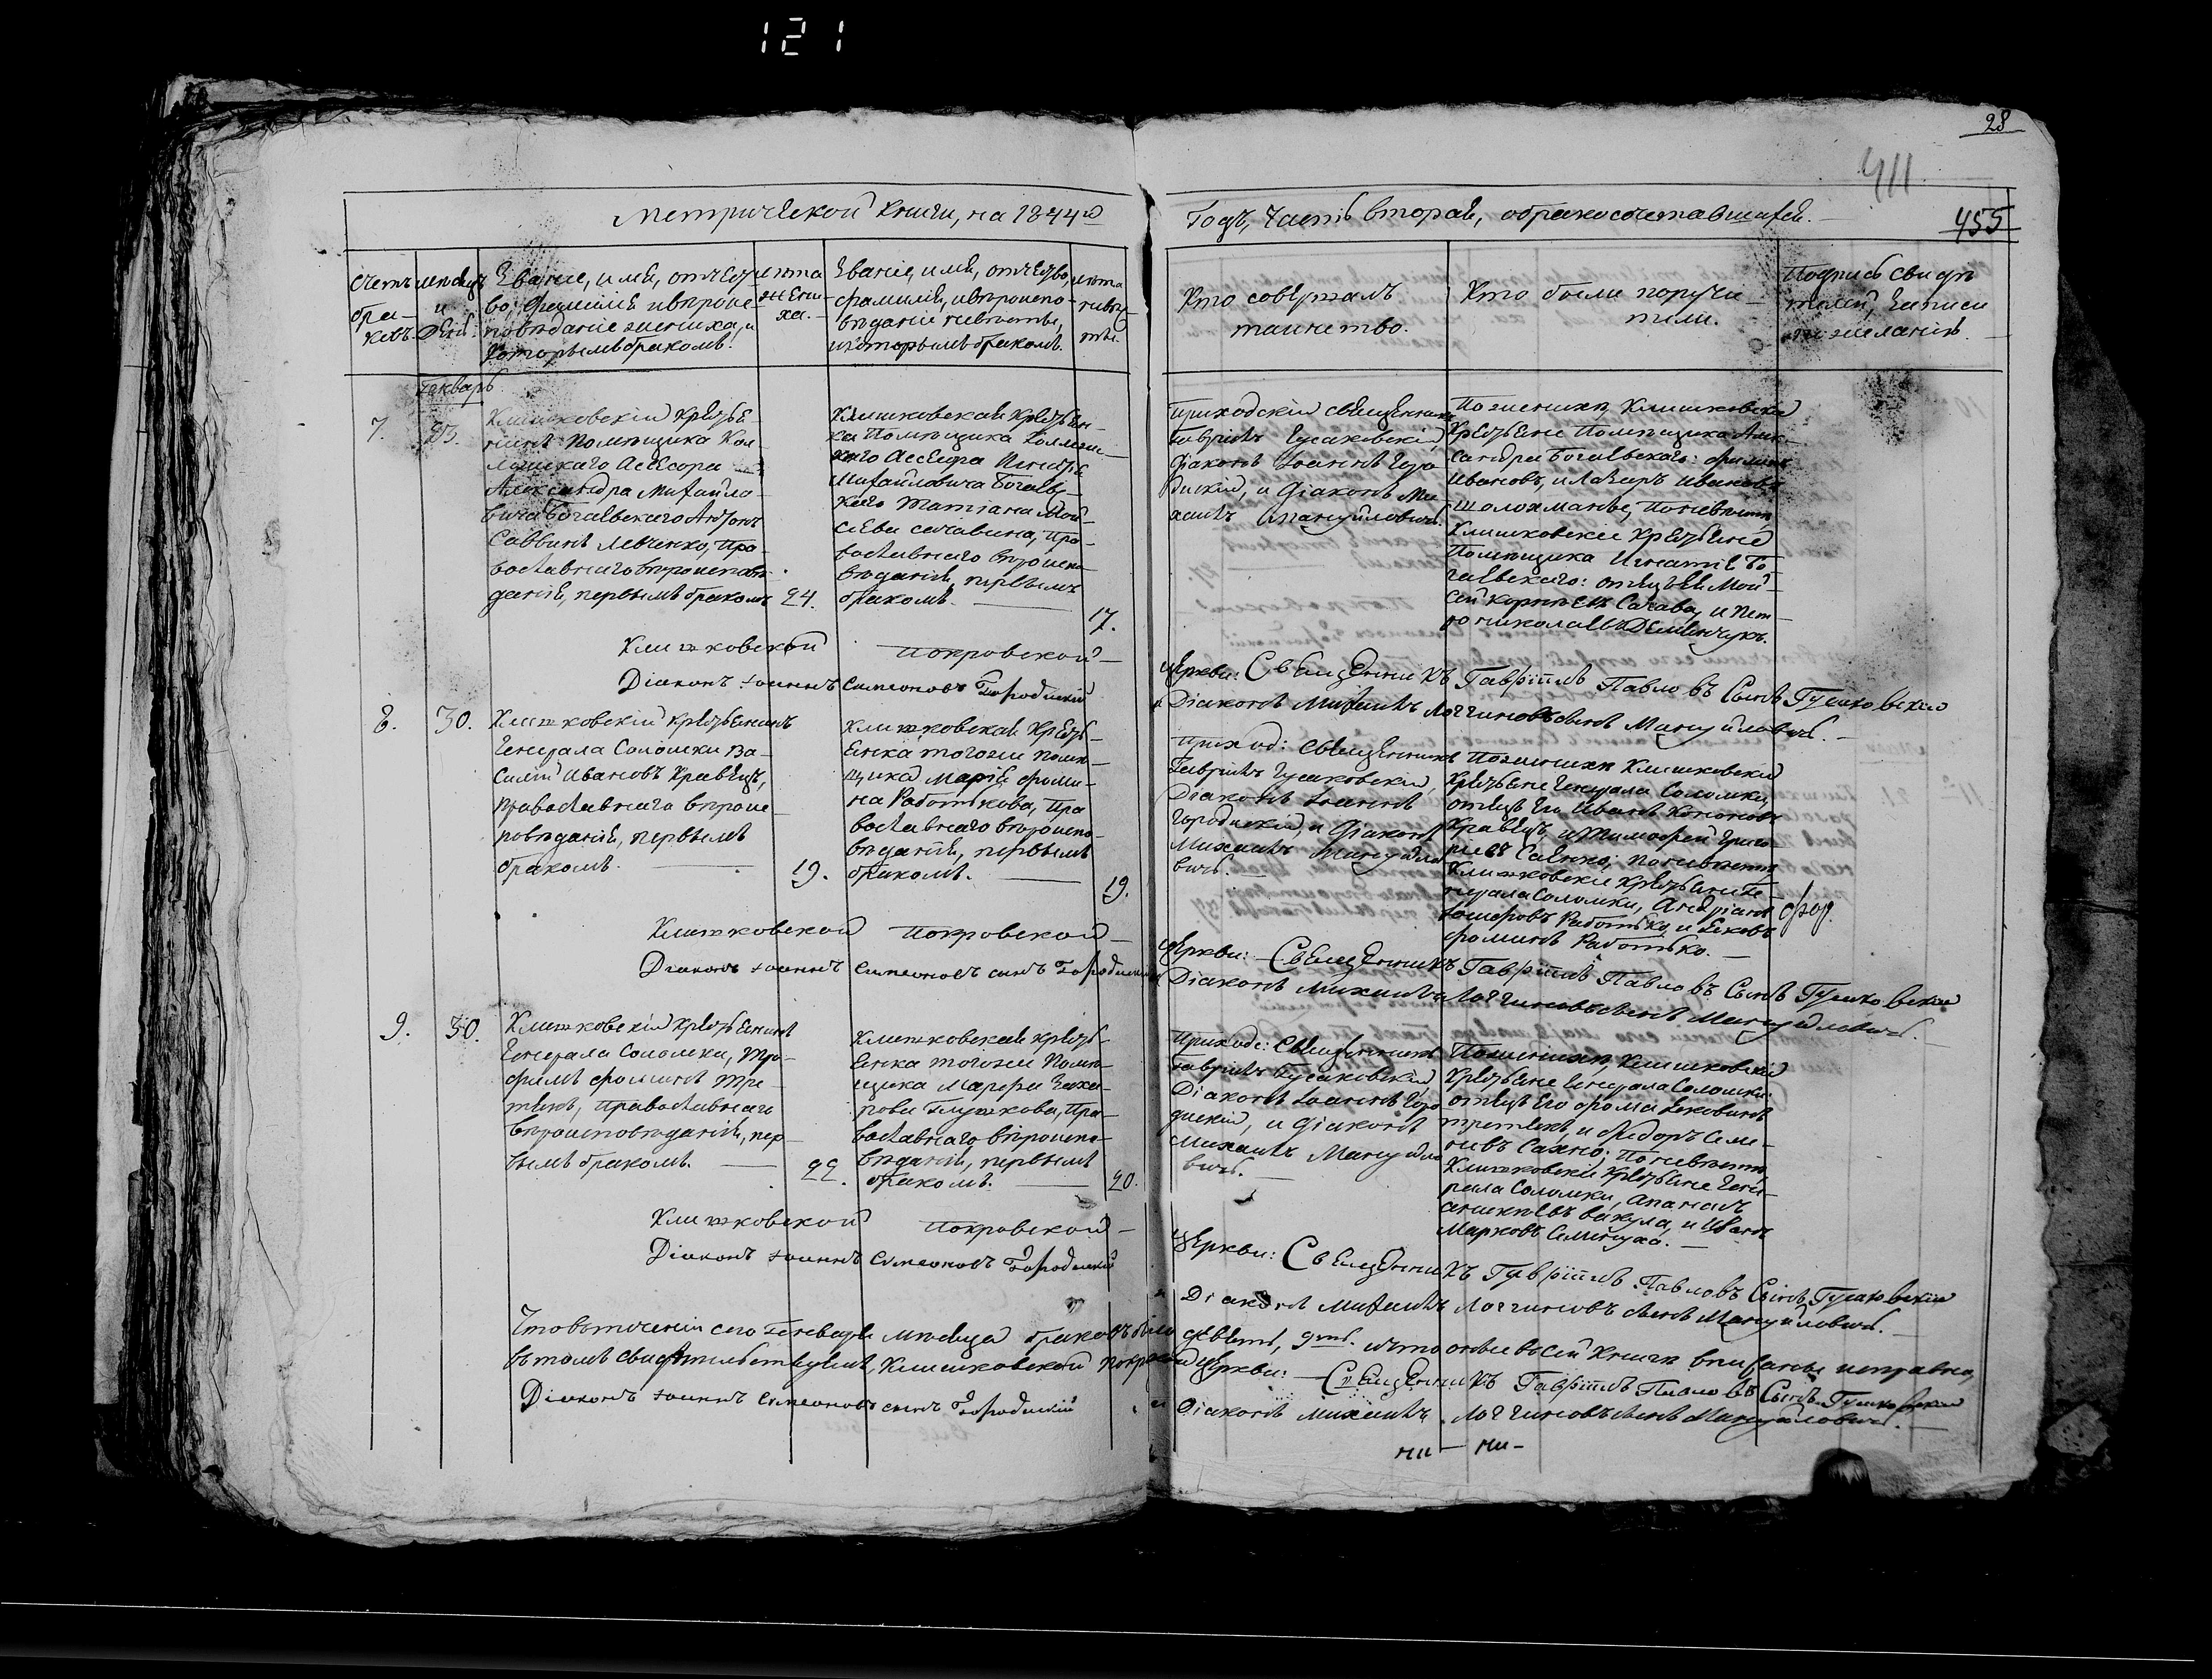 121
28
411
Метрической книги, на 1844й
Годъ, Часть вторая, о бракосочетавшихся.
455
Счетъ браковъ.
мѣсяцъ и День.
Званіе, имя, отчест-
во, фамилія и вѣроис-
повѣданіе жениха, и
которымъ бракомъ.
лѣта жениха.
Званіе, имя, отчество,
фамилія, и вѣроиспо-
вѣданіе невѣсты,
и которымъ бракомъ.
лѣта невѣсты.
Кто совершалъ
таинство.
Кто были поручи-
тели.
Подпись свидѣ
телей записи
по желанію.
Генварь
7.
23.
Клишковскій Крестья-
нинъ Помѣщика Кол
лежскаго Асесора
Александра Михайло-
вича Богаевскаго Антонъ
Саввинъ Левченко, Пра-
вославнаго вѣроисповѣ-
данія, первымъ бракомъ
24.
Клишковская Крестьян-
ка Помѣщика Коллежс-
каго Асесора Игнатія
Михайловича Богаевс-
каго Татіана Мой-
сеева Сачавина, Пра-
вославнаго вѣроиспо-
вѣданія, первымъ
бракомъ.
17.
Приходскій священникъ
Гавріилъ Гусаковскій,
Діаконъ Іоаннъ Горо
дискій, и Діаконъ Ми-
хаилъ Мануйловичъ.
По женихѣ Клишковскіе
Крестьяне Помѣщика Алек-
сандра Богаевскаго:
Ивановъ, и Лазарь Ивановъ
По невѣстѣ
Клишковскіе Крестьяне
Помѣщика Игнатія Бо-
гаевскаго: отецъ ея Мой-
сей Корнѣевъ Сачава, и Пет-
ро Николаевъ Демьянчукъ.
Клишковской Покровской
церкви: Священникъ Гавріилъ Павловъ Сынъ Гусаковскій
Діаконъ Іоаннъ Симеоновъ Городискій
и Діаконъ Михаилъ Логгиновъ сынъ Мануйловичъ.
8.
30.
Клишковскій крестьянинъ
Генерала Соломки Ва-
силій Ивановъ Кравецъ,
Православнаго вѣроис-
повѣданія, первымъ
бракомъ.
19.
Клишковская Кресть-
янка тогожъ помѣ-
щика Марія Фоми-
на Работькова, Пра
вославнаго вѣроиспо-
вѣданія, первымъ
бракомъ.
19.
Приход: Священникъ
Гавріилъ Гусаковскій,
Діаконъ Іоаннъ
Городискій, и Діаконъ
Михаилъ Мануйло
вичъ.
По женихѣ Клишковскіе
Крестьяне Генерала Соломки,
отецъ его Иванъ Кононовъ
Кравецъ, и Тимофей Григо
рьевъ Саенко; По невѣстѣ
Клишковскіе Крестьяне Ге
нерала Соломки, Андріанъ
Работько, и Яковъ
Фоминъ Работько.
Клишковской Покровской
церкви: Священникъ Гавріилъ Павловъ Сынъ Гусаковскій
Діаконъ Іоаннъ Симеоновъ сынъ Городискій
Діаконъ Михаилъ Логгиновъ сынъ Мануйловичъ.
9.
30.
Клишковскій крестьянинъ
Генерала Соломки, Тро-
фимъ Фоминъ Тре-
тякъ, Православнаго
вѣроисповѣданія, пер-
вымъ бракомъ.
22.
Клишковская кресть-
янка тогожъ Помѣ-
щика Марфа Заха-
рова Глушкова, Пра-
вославнаго вѣроиспо-
вѣданія, первымъ
бракомъ.
20.
Приход: Священникъ
Гавріилъ Гусаковскій,
Діаконъ Іоаннъ Горо
дискій, и Діаконъ
Михаилъ Мануйло
вичъ.
По женихѣ, Клишковскіе
Крестьяне Генерала Соломки:
отецъ его Фома Яковлевъ
Третякъ, и Федоръ Семе-
новъ Сахно; По невѣстѣ,
Клишковскіе Крестьяне Гене-
рала Соломки,
Вакула, и Иванъ
Марковъ
Клишковской Покровской
церкви: Священникъ Гавріилъ Павловъ Сынъ Гусаковскій
Діаконъ Іоаннъ Симеоновъ Городискій
Діаконъ Михаилъ Логгиновъ сынъ Мануйловичъ.
Что въ теченіи сего Генваря мѣсяца браковъ было девять, 9ть. и что оные въ сей книгѣ вписаны исправно,
въ томъ свидѣтельствуемъ, Клишковской Покровской церкви: Священникъ Гавріилъ Павловъ Сынъ Гусаковскій
Діаконъ Іоаннъ Симеоновъ сынъ Городискій
и Діаконъ Михаилъ Логгиновъ сынъ Мануйловичъ.
ни - ни -